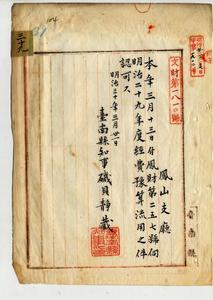 文財第一八一〇號
鳳山支廳
本年三月十三日付鳳財第二五七號伺
明治二十九年度經費豫算流用之件
認可ス
明治三十年三月廿二日
臺南縣知事磯貝靜藏
臺南縣